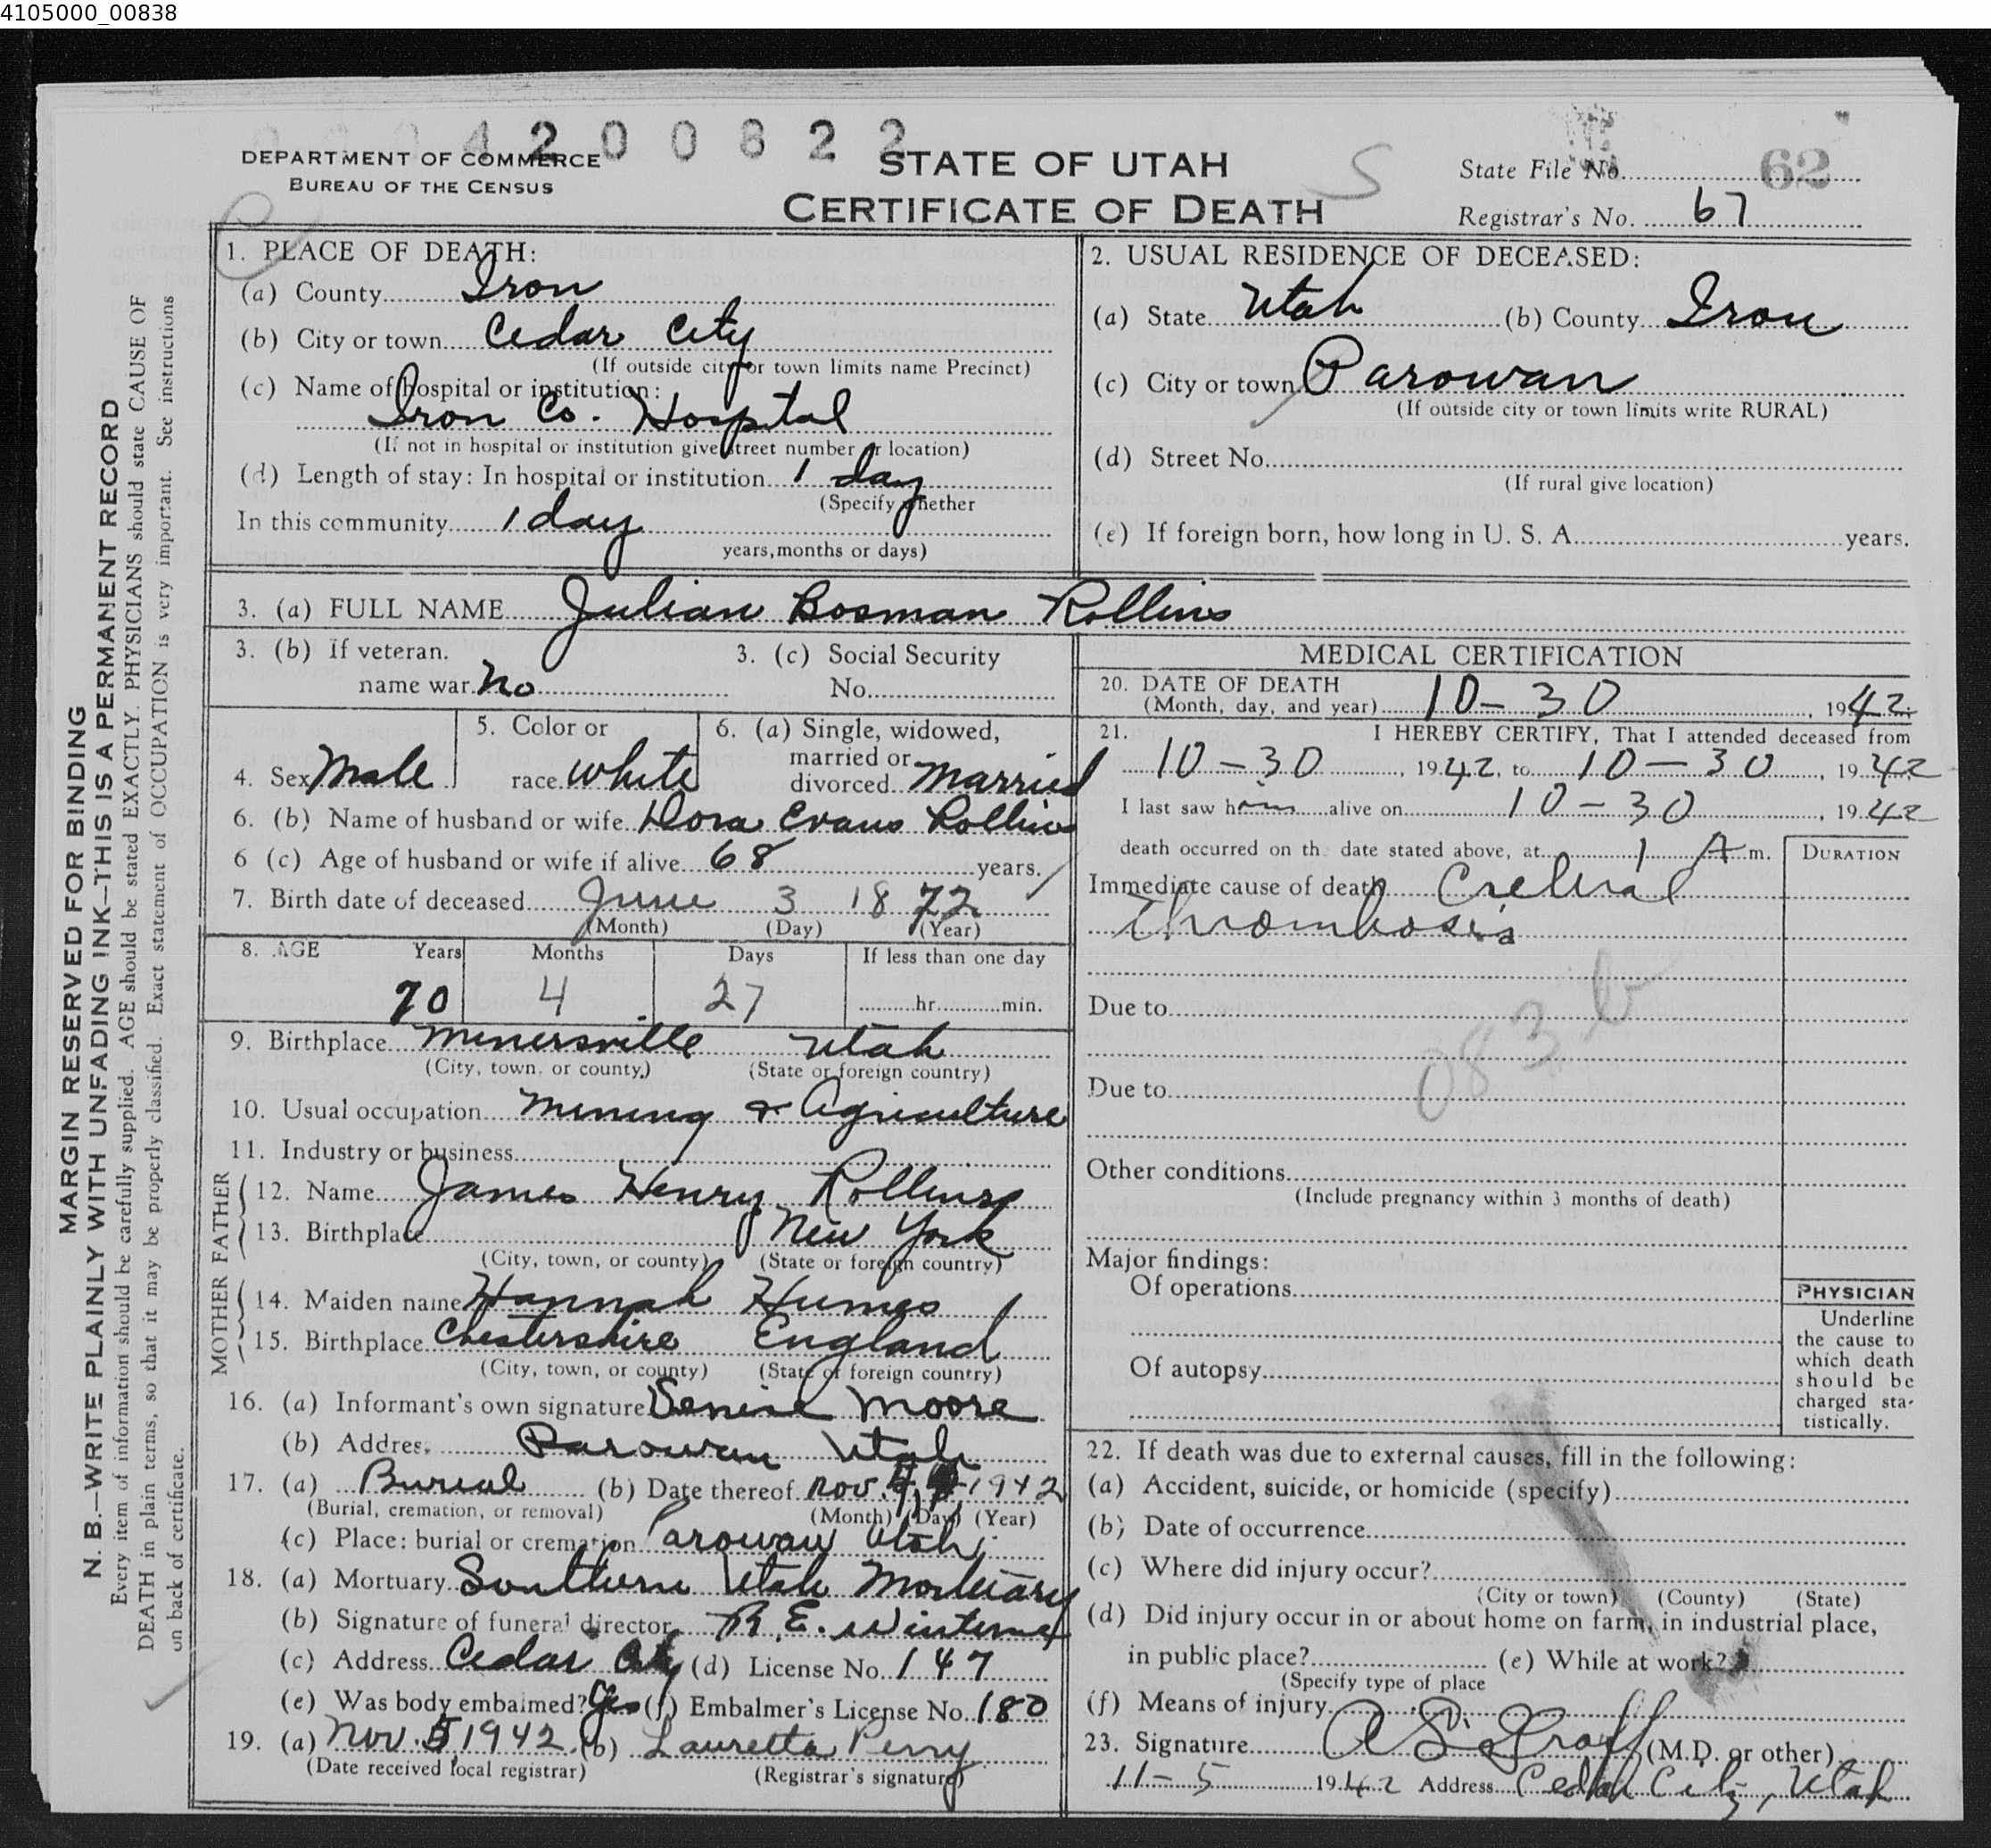 4105000_00838
4 2 0 0 8 2 2
DEPARTMENT OF COMMERCE
BUREAU OF THE CENSUS
STATE OF UTAH
CERTIFICATE OF DEATH
S
State File No. 62
Registrar's No. 67
MARGIN RESERVED FOR BINDING
N. B.—WRITE PLAINLY WITH UNFADING INK—THIS IS A PERMANENT RECORD
Every item of information should be carefully supplied. AGE should be stated EXACTLY. PHYSICIANS should state CAUSE OF
DEATH in plain terms, so that it may be properly classified. Exact statement of OCCUPATION is very important. See instructions
on back of certificate.
1. PLACE OF DEATH:
(a) County Iron
(b) City or town Cedar City
(If outside city or town limits name Precinct)
(c) Name of hospital or institution:
Iron Co. Hospital
(If not in hospital or institution give street number or location)
(d) Length of stay: In hospital or institution 1 day
(Specify whether
In this community 1 day
years, months or days)
2. USUAL RESIDENCE OF DECEASED:
(a) State Utah (b) County Iron
(c) City or town Parowan
(If outside city or town limits write RURAL)
(d) Street No.
(If rural give location)
(e) If foreign born, how long in U. S. A. years.
3. (a) FULL NAME Julian Bosman Rollins
3. (b) If veteran.
name war No
3. (c) Social Security
No.
4. Sex Male
5. Color or
race White
6. (a) Single, widowed,
married or
divorced Married
6. (b) Name of husband or wife Dora Evans Rollins
6 (c) Age of husband or wife if alive 68 years.
7. Birth date of deceased June 3 1872
(Month) (Day) (Year)
8. AGE Years Months Days If less than one day
70 4 27 hr. min.
9. Birthplace Minersville Utah
(City, town, or county) (State or foreign country)
10. Usual occupation Mining & Agriculture
11. Industry or business
FATHER
12. Name James Henry Rollins
13. Birthplace New York
(City, town, or county) (State or foreign country)
MOTHER
14. Maiden name Hannah Humes
15. Birthplace Chestershire England
(City, town, or county) (State of foreign country)
16. (a) Informant's own signature Denise Moore
(b) Address Parowan Utah
17. (a) Burial (b) Date thereof Nov. 1942
(Burial, cremation, or removal) (Month) (Day) (Year)
(c) Place: burial or cremation Parowan Utah
18. (a) Mortuary Southern Utah Mortuary
(b) Signature of funeral director R. E. Winterrose
(c) Address Cedar City (d) License No. 147
(e) Was body embalmed? Yes (f) Embalmer's License No. 180
19. (a) Nov. 5 1942 (b) Lauretta Perry
(Date received local registrar) (Registrar's signature)
MEDICAL CERTIFICATION
20. DATE OF DEATH
(Month, day, and year) 10-30, 1942
21. I HEREBY CERTIFY, That I attended deceased from
10-30, 1942, to 10-30, 1942
I last saw him alive on 10-30, 1942
death occurred on the date stated above, at 1 A m.
DURATION
Immediate cause of death Crebral
Thrombosis
083b
Due to
Due to
Other conditions
(Include pregnancy within 3 months of death)
Major findings:
Of operations
Of autopsy
PHYSICIAN
Underline
the cause to
which death
should be
charged sta-
tistically.
22. If death was due to external causes, fill in the following:
(a) Accident, suicide, or homicide (specify)
(b) Date of occurrence
(c) Where did injury occur?
(City or town) (County) (State)
(d) Did injury occur in or about home on farm, in industrial place,
in public place? (e) While at work?
(Specify type of place
(f) Means of injury
23. Signature (M.D. or other)
11-5 1942 Address Cedar City, Utah